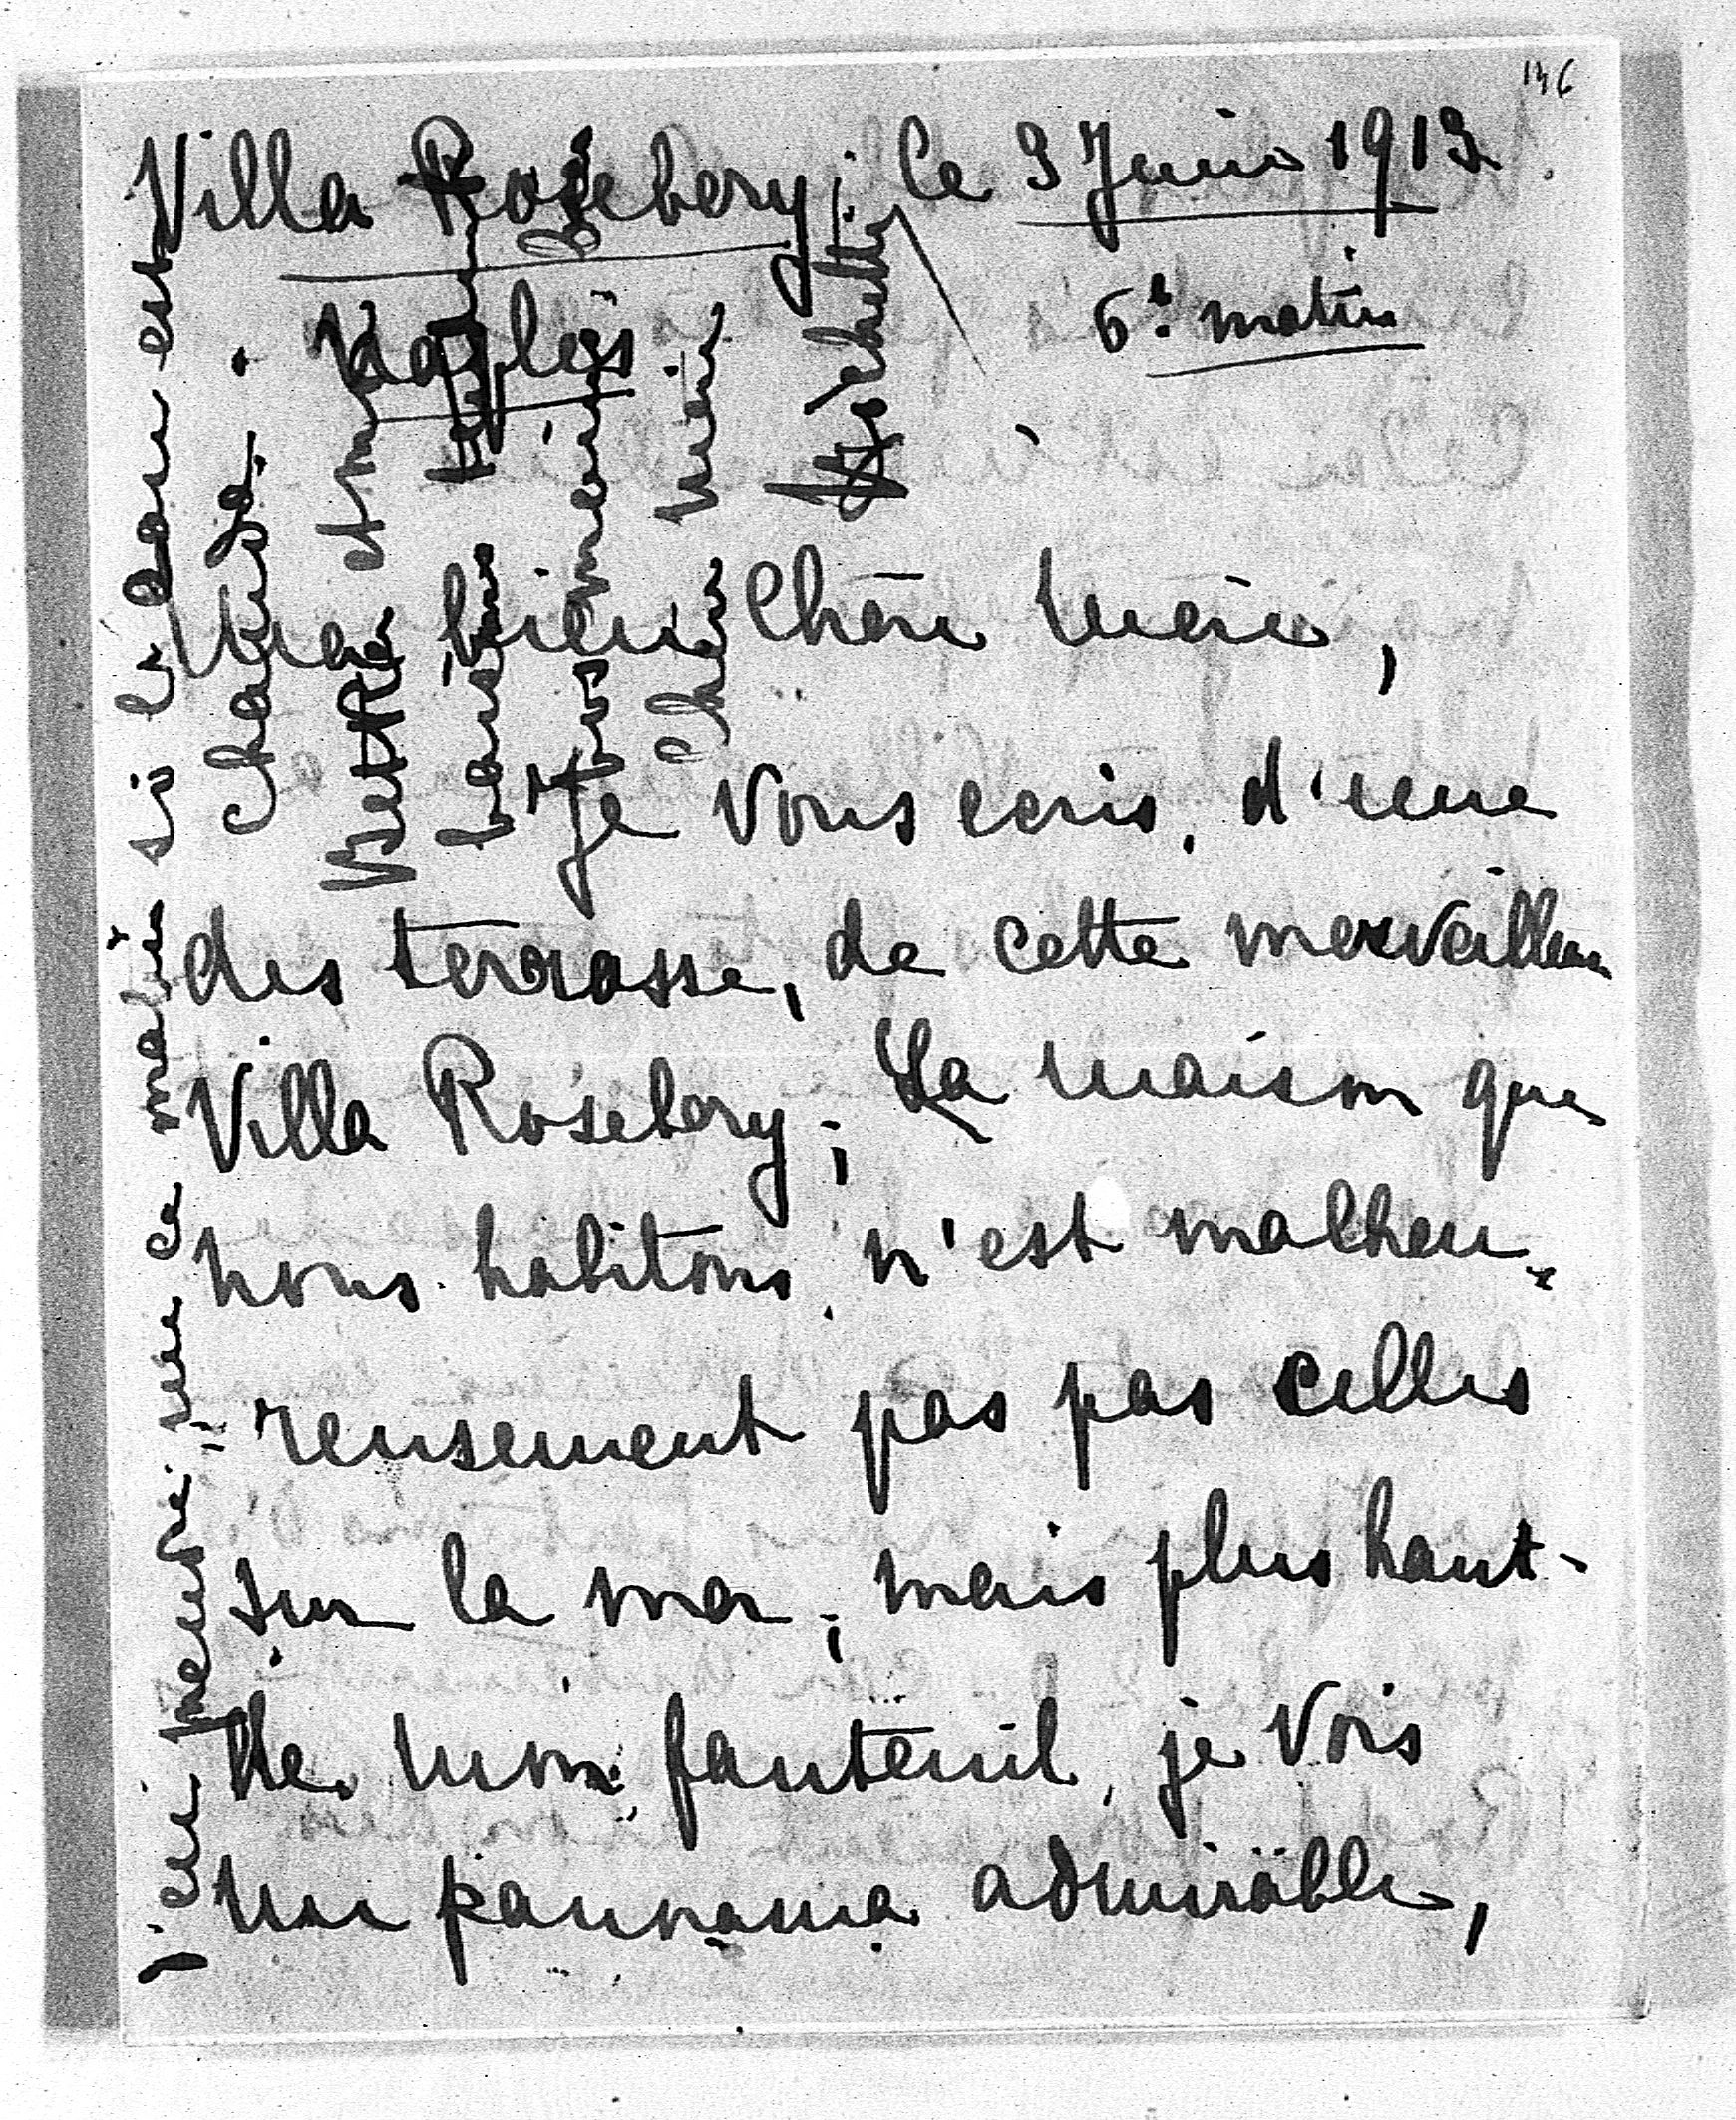 146
Villa Rosebery; le 9 Juin 1913
Naples
6h matin
Ma bien Chère Mère,
Je vous ecris, d'une
des terrasse, de cette merveilleuse
Villa Rosebery; La maison que
nous habitons, n'est malheu-
reusement pas pas celles
sur la mer; mais plus haut-
De mon fauteuil, je vois
une panorama admirable,
j'ai pensé que ce matin si le bon est
chaise.
et
bien
Chère Mère